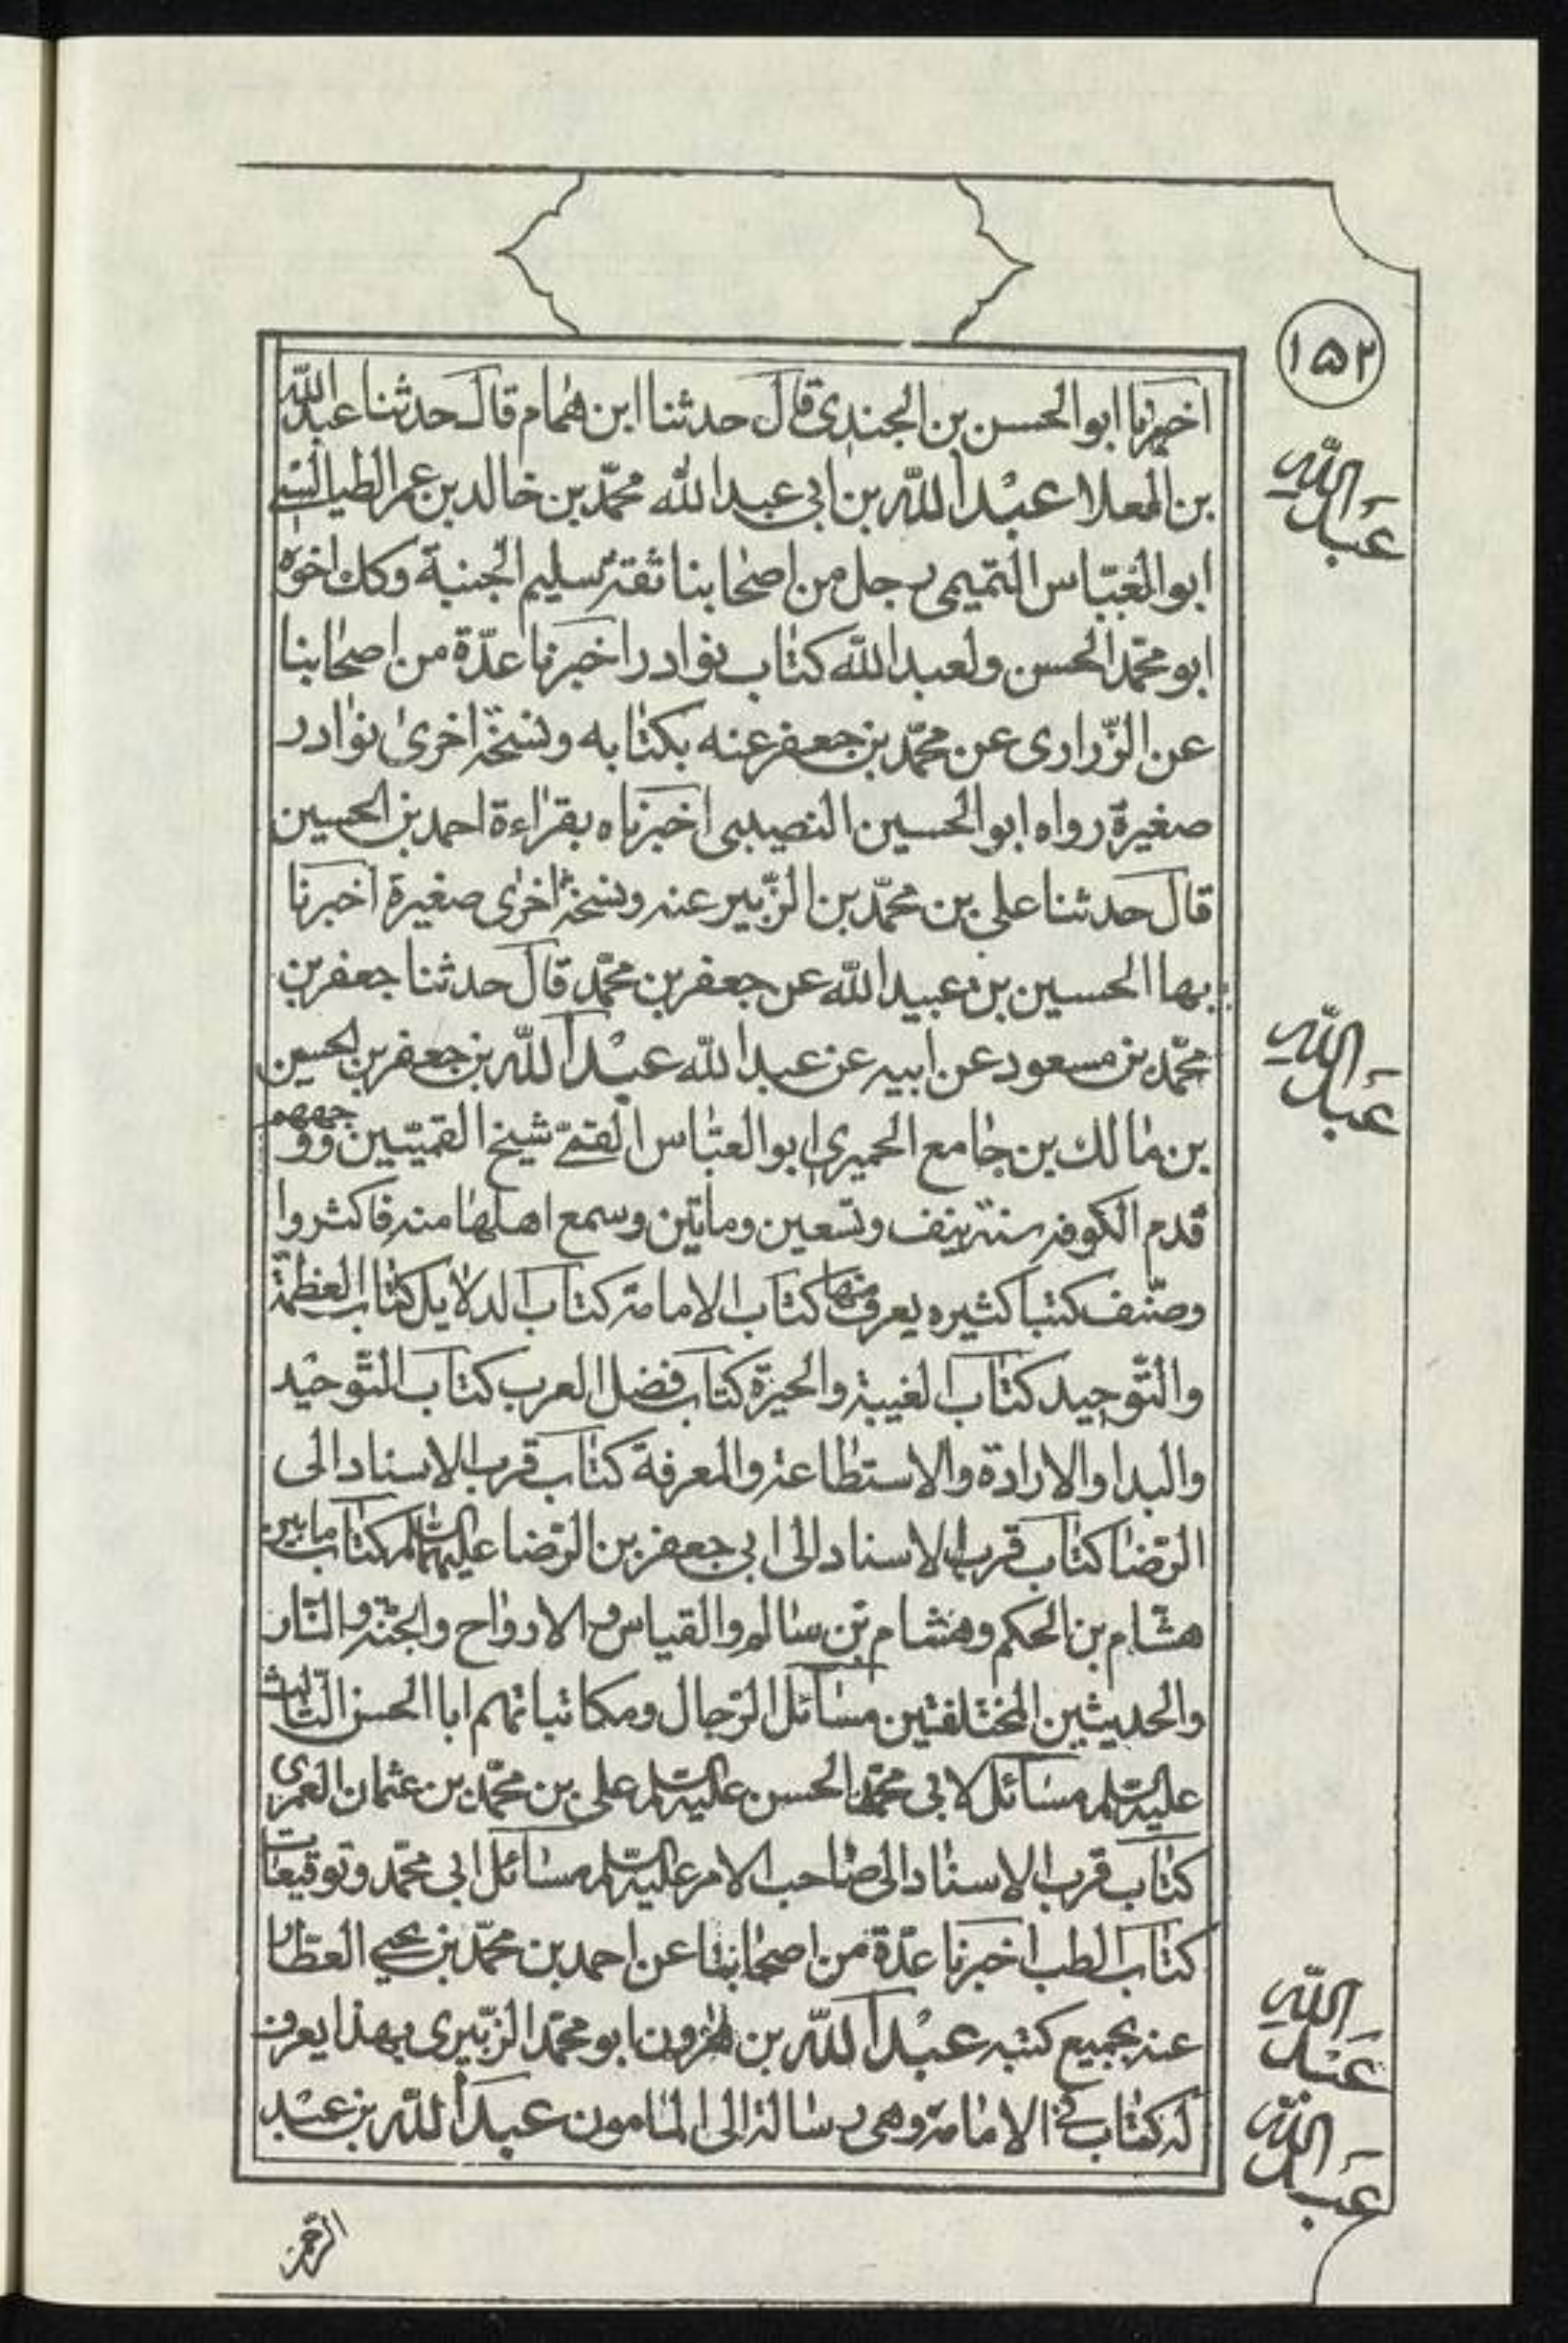 ١٥٢
اخبرنا ابوالحسن بن الجندى قال حدثنا ابن همام قال حدثنا عبدالله
بن المعلا عبدالله بن ابى عبدالله محمّد بن خالد بن عمر الطيالسى
ابوالعبّاس التميمى رجل من اصحابنا ثقة سليم الجنبة وكك اخوه
ابو محمّد الحسن ولعبدالله كتاب نوادر اخبرنا عدّة من اصحابنا
عن الزّرارى عن محمّد بن جعفر عنه بكتابه ونسخة اخرى نوادر
صغيرة رواه ابوالحسين النصيبى اخبرناه بقراءة احمد بن الحسين
قال حدثنا على بن محمّد بن الزّبير عنه ونسخة اخرى صغيرة اخبرنا
بها الحسين بن عبيدالله عن جعفر بن محمّد قال حدثنا جعفر بن
محمّد بن مسعود عن ابيه عن عبدالله عبدالله بن جعفر بن الحسين
بن مالك بن جامع الحميرى ابوالعبّاس القمّى شيخ القميّين ووجههم
قدم الكوفة سنة نيف وتسعين ومأتين وسمع اهلها منه فاكثروا
وصنّف كتبا كثيره يعرف منها كتاب الامامة كتاب الدلايل كتاب العظمة
والتّوحيد كتاب الغيبة والحيرة كتاب فضل العرب كتاب التّوحيد
والبدا والارادة والاستطاعة والمعرفة كتاب قرب الاسناد الى
الرّضا كتاب قرب الاسناد الى ابى جعفر بن الرّضا عليهماالسّلم كتاب مابين
هشام بن الحكم وهشام بن سالم والقياس والارواح والجنّة والنّار
والحديثين المختلفتين مسائل الرّجال ومكاتباتهم اباالحسن الثّالث
عليه السّلم مسائل لابى محمّد الحسن عليه السّلم على بن محمّد بن عثمان العمرى
كتاب قرب الاسناد الى صاحب الامر عليه السّلم مسائل ابى محمّد وتوقيعات
كتاب الطب اخبرنا عدّة من اصحابنا عن احمد بن محمّد بن يحيى العطار
عنه بجميع كتبه عبدالله بن هرون ابو محمّد الزّبيرى بهذا يعرف
له كتاب فى الامامة وهى رسالة الى المامون عبدالله بن عبد
عبدالله
عبدالله
عبدالله
عبدالله
الرّحمن